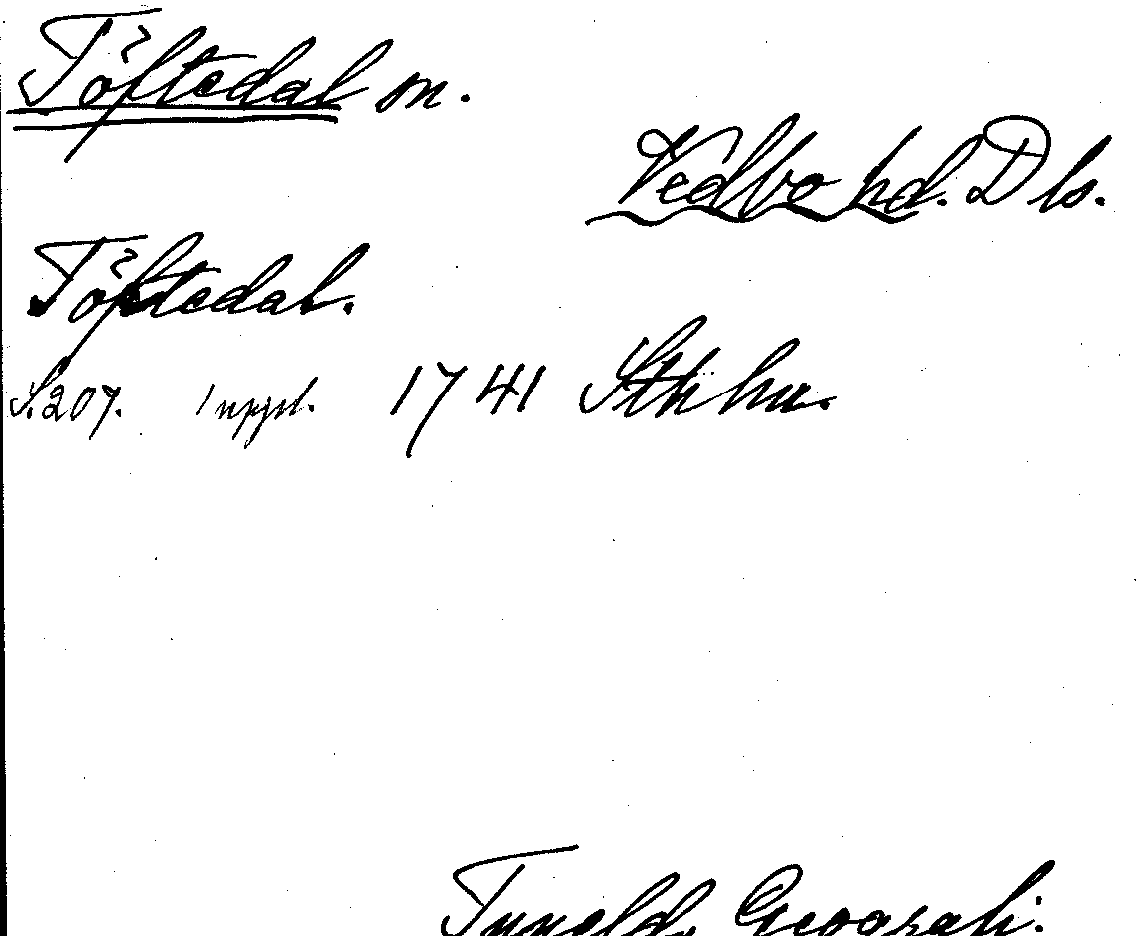 Töftedal sn.
Vedbo hd. Dls.
Töftedal.
S. 207. 1 uppl. 1741 Sthlm.
Tuneld, Geografi.